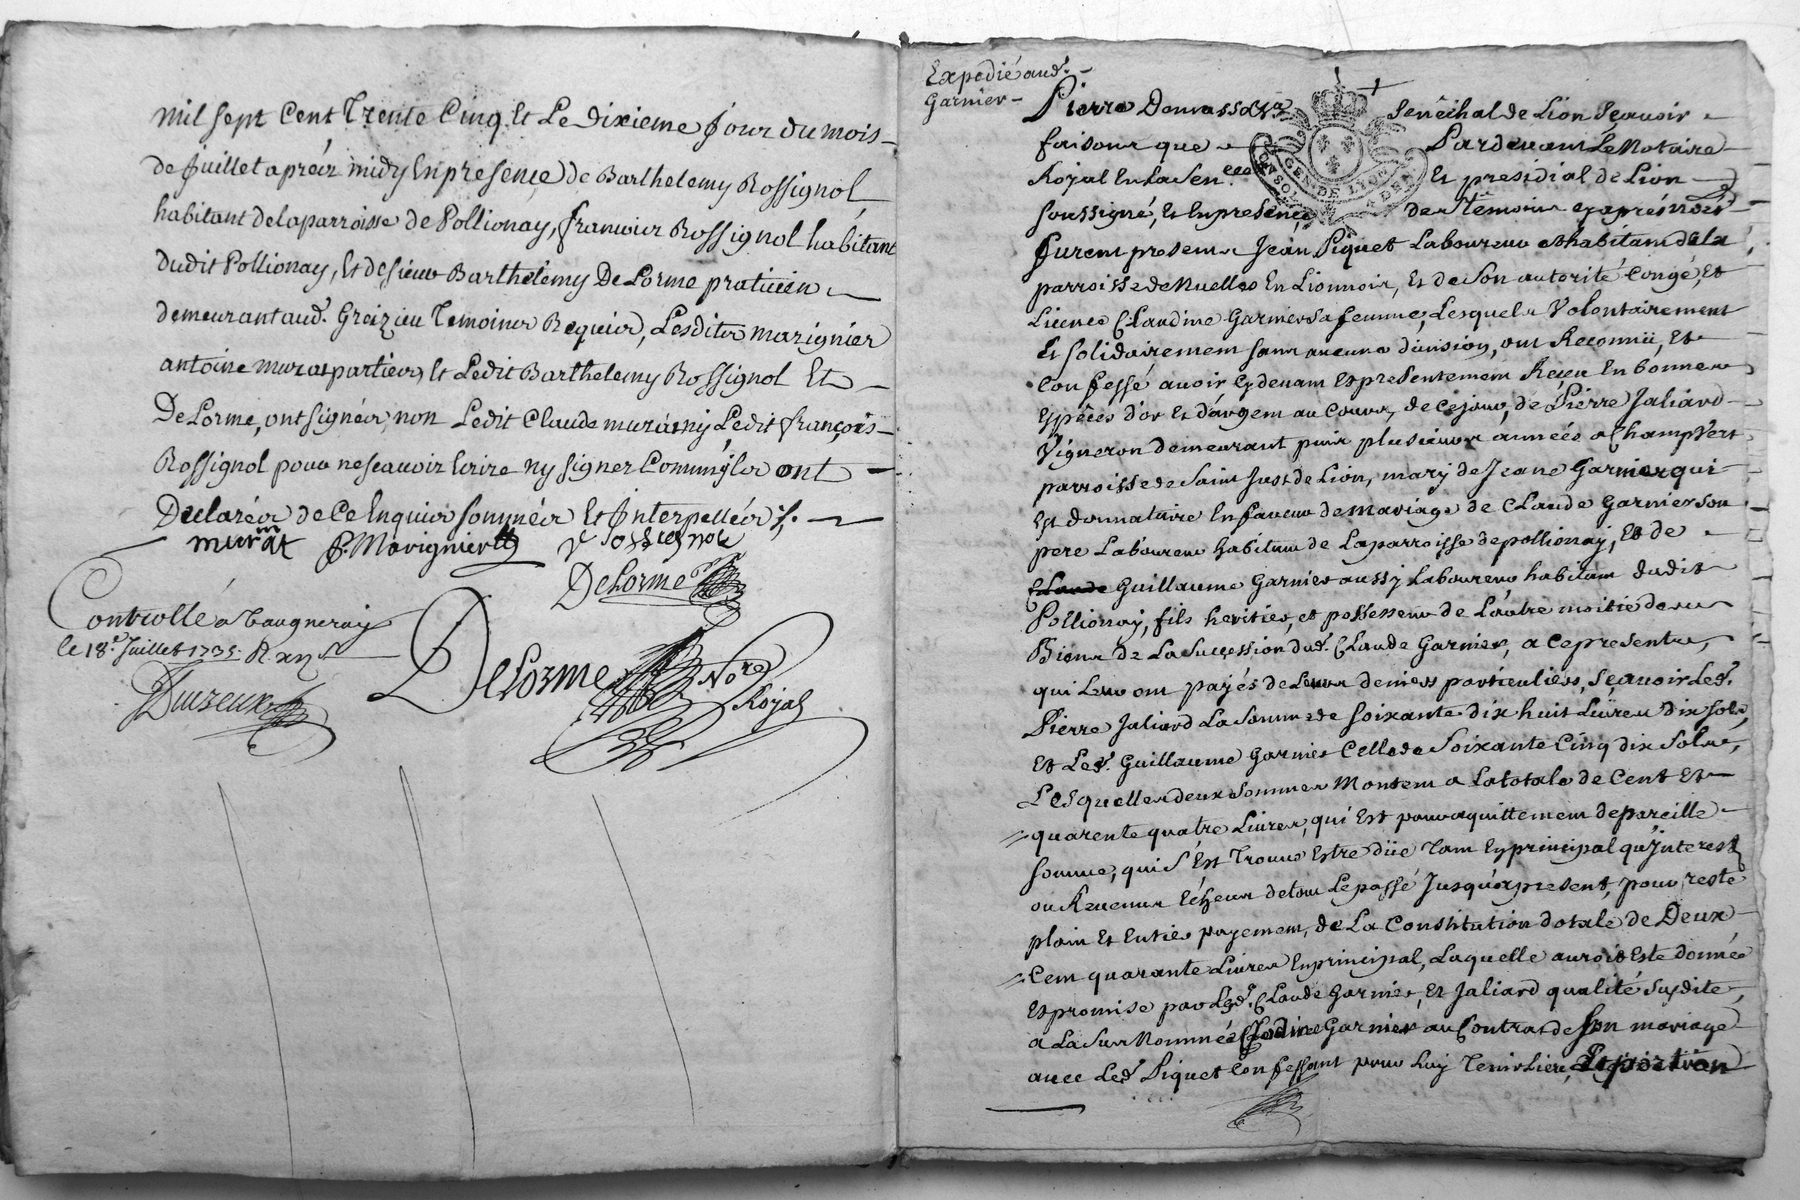 mil sept Cent Trente Cinq Et Le dixieme Jour du mois
de Juillet aprés midy En presençe de Barthelemy Rossignol
habitant de la parroisse de Pollionay, françois Rossignol habitant
dudit Pollionay, Et de Sieur Barthelemy De Lorme praticien
demeurant aud. Greizieu Temoins Requis, Lesdits marignier
antoine murat parties, Et Ledit Barthelemy Rossignol Et
De Lorme, ont signés, non Ledit Claude murat ny Ledit françois
Rossignol pour ne scavoir Ecrire ny signer Comm' ils ont
Declarés de Ce Enquis sommés Et Interpellés
murat P. Marignier Rossignol
DeLorme
Controllé a Vaugneray
le 18e. Juillet 1735.
DeLorme Nore
Royal
Expedié aud.
Garnier
Pierre Senêchal de Lion Sçavoir
faisons que Pardevant Le Notaire
Roïal En La Sen.cee Et présidial de Lion
soussigné, Et En presençe des Témoins cy aprés nommés
furent presens Jean Piquet Laboureur et habitant de la
parroisse de Nuelles En Lionnois, Et de Son autorité Congé, Et
Licence Claudine Garnier Sa femme, Lesquels Volontairement
Et solidairement sans aucune division, ont Reconnü, Et
Confessé avoir Cy devant Et presentement Reçeu En bonnes
Espêces d'or Et d'argent au Cours, de ce jour, de Pierre Jaliard
Vigneron demeurant puis plusieurs années a Champ Vert
parroisse de Saint Just de Lion, mary de Jeane Garnier qui
Est donnataire En faveur de mariage de Claude Garnier son
pere Laboureur habitant de La parroisse de pollionay, Et de
Claude Guillaume Garnier aussy Laboureur habitant dudit
Pollionay, fils heritier, et possesseur de L'autre moitié des
Biens de La Succession dud. Claude Garnier, a ce presents,
qui Leur ont payés de Leurs deniers particuliers, Sçavoir Led.
Pierre Jaliard La Somme de soixante dix huit Livres dix sols,
Et Led. Guillaume Garnier Celle de Soixante Cinq dix Sols,
Lesquelles deux Sommes Montent a La totale de Cent Et
quarente quatre Livres, qui Est pour aquittement de pareille
somme, qui S'Est Trouvé Estre düe Tant En principal qu'Interest
ou Revenus Echeus de tout Le passé Jusqu'a present, pour reste
plain Et Entier payement, de La Constitution dotale de Deux
Cent quarante Livres En principal, Laquelle auroit Este donnée
Et promise par Led. Claude Garnier, Et Jaliard qualité Susdite,
a La Sus Nommée Clodine Garnier au Contrat de Son mariage
avec Led. Piquet Confessant pour Luy Tenir Lieu, Et portion